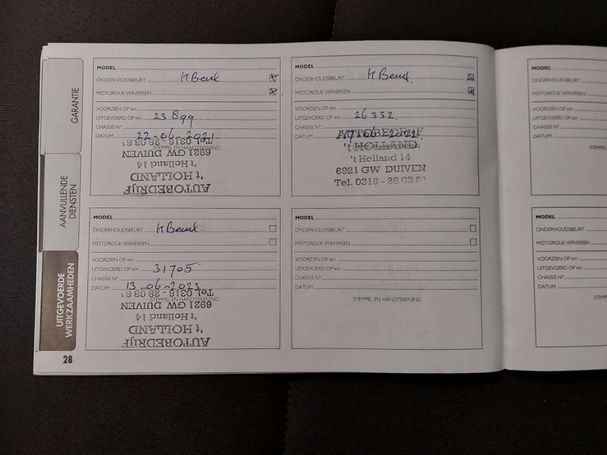 GARANTIE
AANVULLENDE
DIENSTEN
UITGEVOERDE
WERKZAAMHEDEN
28
MODEL
ONDERHOUDSBEURT
MOTOROLIE VERVERSEN
VOORZIEN OP km
UITGEVOERD OP km 23899
CHASSIS N°
DATUM 22-06-2021
STEMPEL EN HANDTEKENING
AUTOBEDRIJF
't HOLLAND
't Holland 14
6921 GW DUIVEN
Tel. 0316 - 28 08 81
MODEL
ONDERHOUDSBEURT
MOTOROLIE VERVERSEN
VOORZIEN OP km
UITGEVOERD OP km 26332
CHASSIS N°
DATUM
AUTOBEDRIJF
't HOLLAND
't Holland 14
6921 GW DUIVEN
Tel. 0316 - 28 08 81
MODEL
ONDERHOUDSBEURT
MOTOROLIE VERVERSEN
VOORZIEN OP km
UITGEVOERD OP km 31705
CHASSIS N°
DATUM 13-06-2023
STEMPEL EN HANDTEKENING
Tel. 0316 - 28 08 81
6921 GW DUIVEN
't Holland 14
't HOLLAND
AUTOBEDRIJF
MODEL
ONDERHOUDSBEURT
MOTOROLIE VERVERSEN
VOORZIEN OP km
UITGEVOERD OP km
CHASSIS N°
DATUM
STEMPEL EN HANDTEKENING
MODEL
ONDERHOUDSBEURT
MOTOROLIE VERVERSEN
VOORZIEN OP km
UITGEVOERD OP km
CHASSIS N°
DATUM
MODEL
ONDERHOUDSBEURT
MOTOROLIE VERVERSEN
VOORZIEN OP km
UITGEVOERD OP km
CHASSIS N°
DATUM